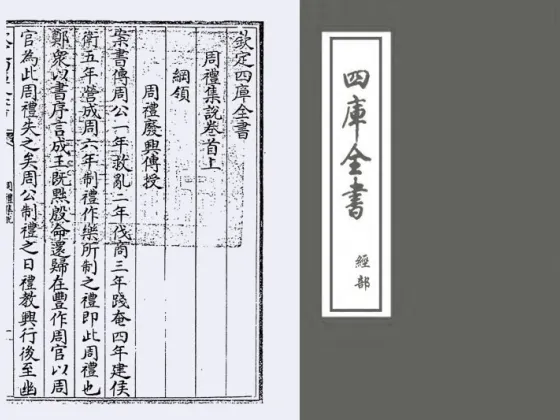 欽定四庫全書
周禮集說卷首上
綱領
周禮廢興傳授
案書傳周公一年救亂二年伐商三年踐奄四年建侯
衛五年營成周六年制禮作樂所制之禮即此周禮也
鄭衆以書序言成王既黜殷命還歸在豐作周官以周
官為此周禮失之矣周公制禮之日禮教興行後至幽
周禮集說
四庫全書
經部